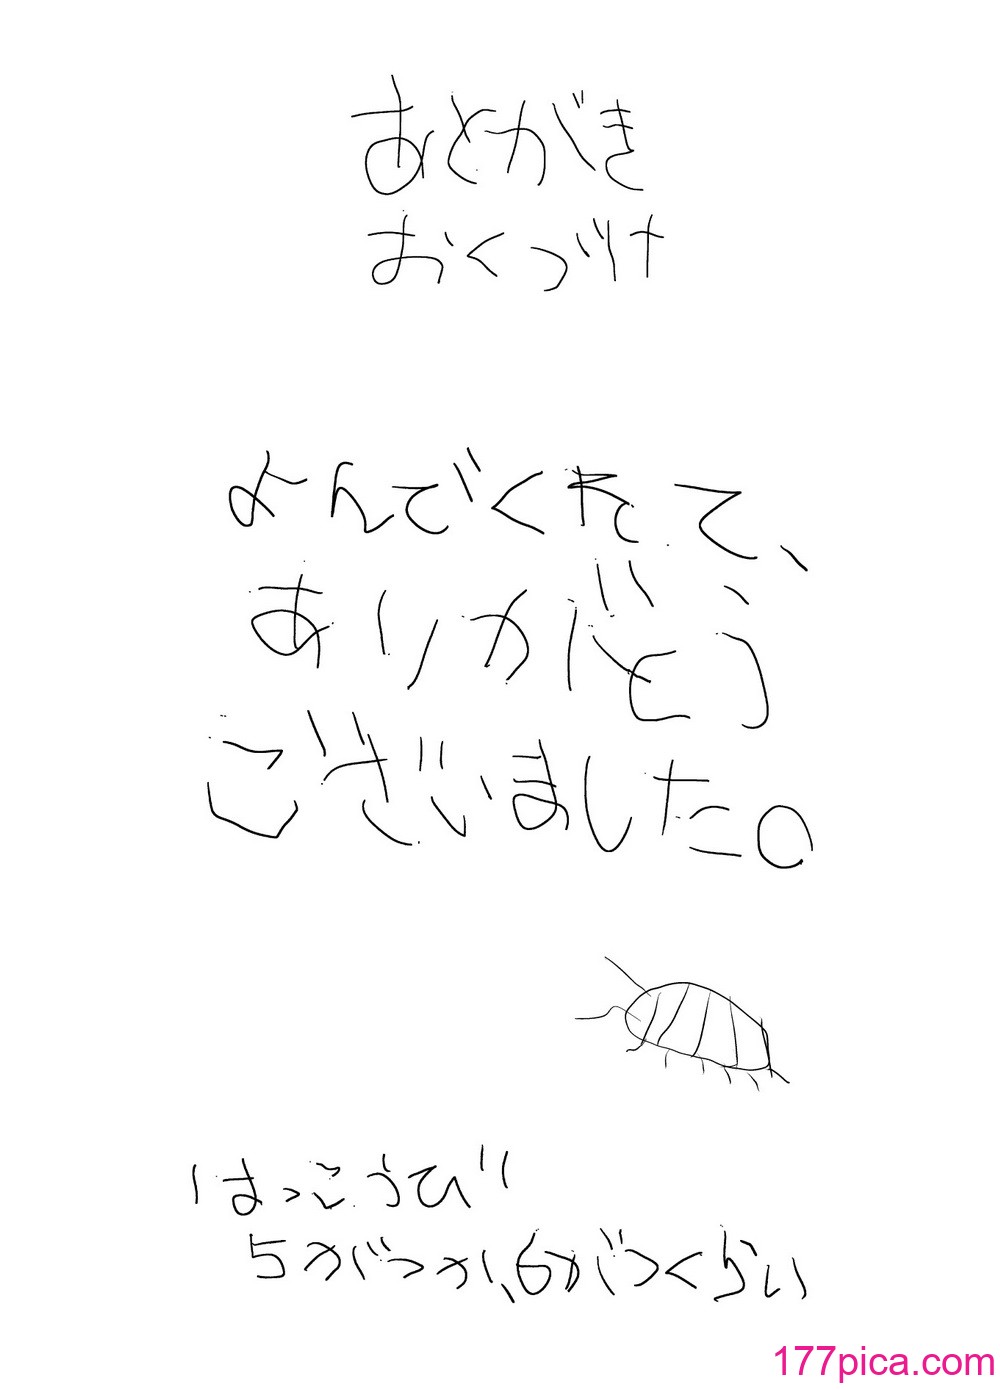 あとがき
おくづけ
よんでくれて、
ありがとう
ございました。
はっこうび
5がつか、6がつくらい
177pica.com